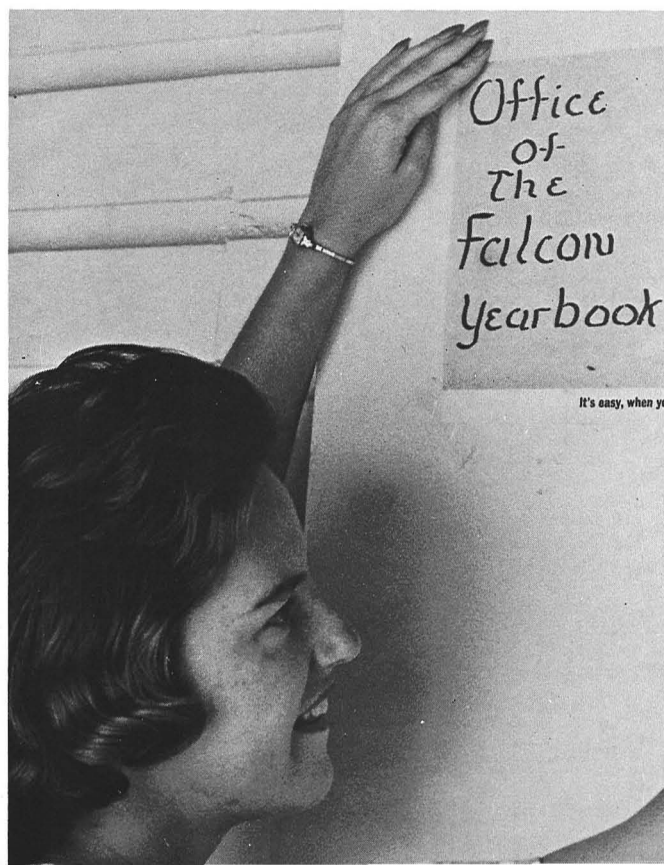 Office
of
The
Falcon
Yearbook
It's easy, when